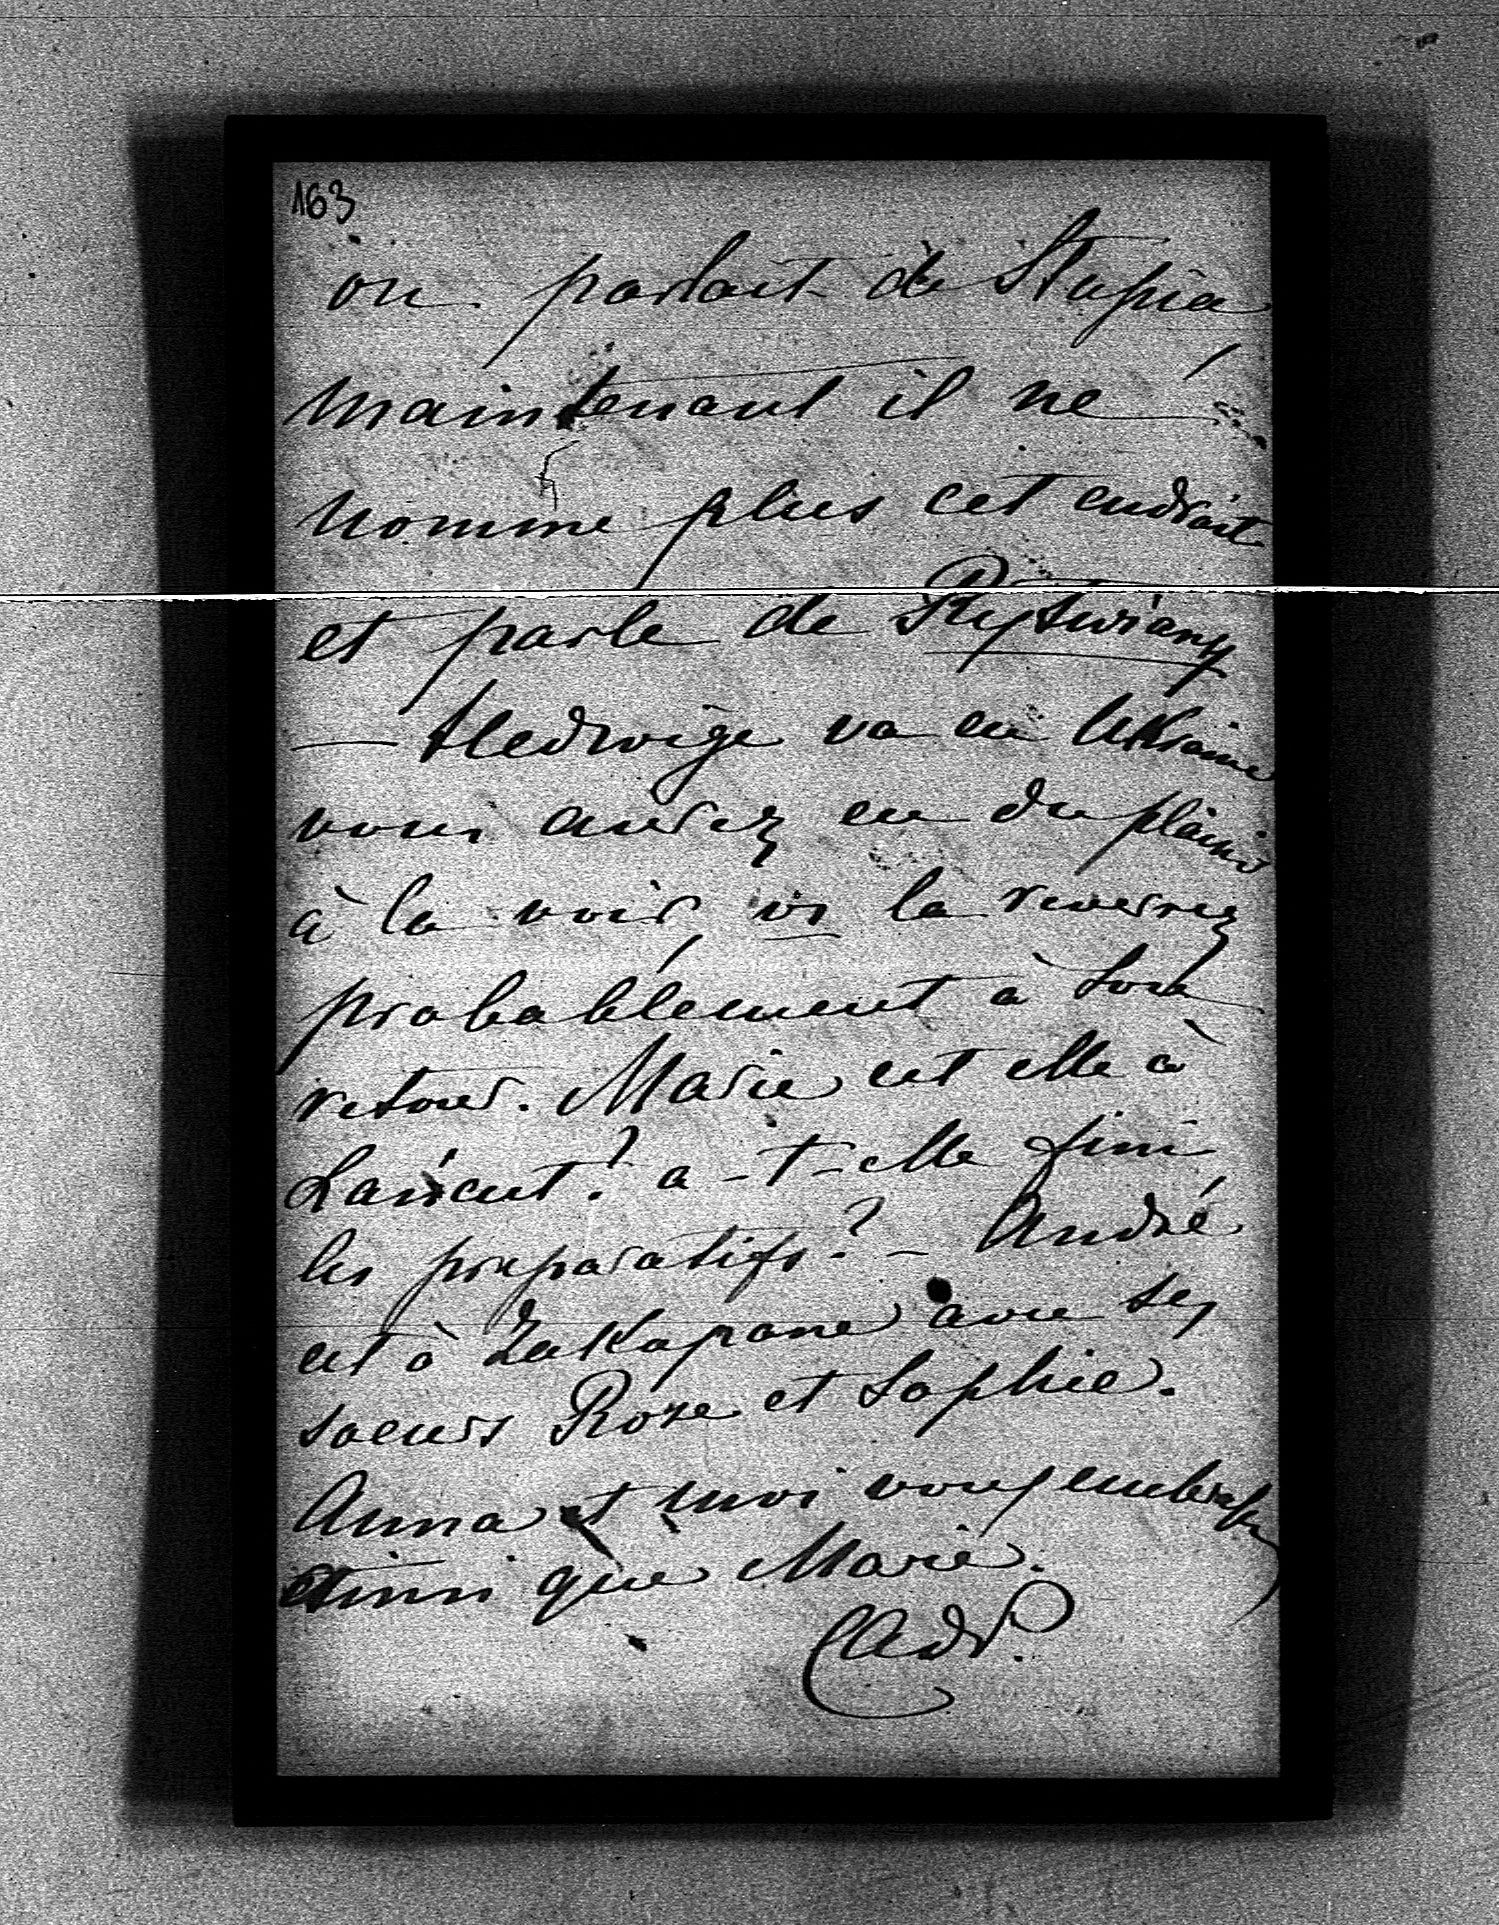 163
on parlait de Stupia
maintenant il ne
nomme plus cet endroit
et parle de
— Hedwige va en Ukraine
vous aurez eu du plaisir
à la voir vs la reverrez
probablement à son
retour. Marie est elle à
Lancut? a-t-elle fini
les preparatifs? — André
est à Zakopane avec ses
soeurs Roze et Sophie.
Anna et moi vous embrassons
ainsi que Marie.